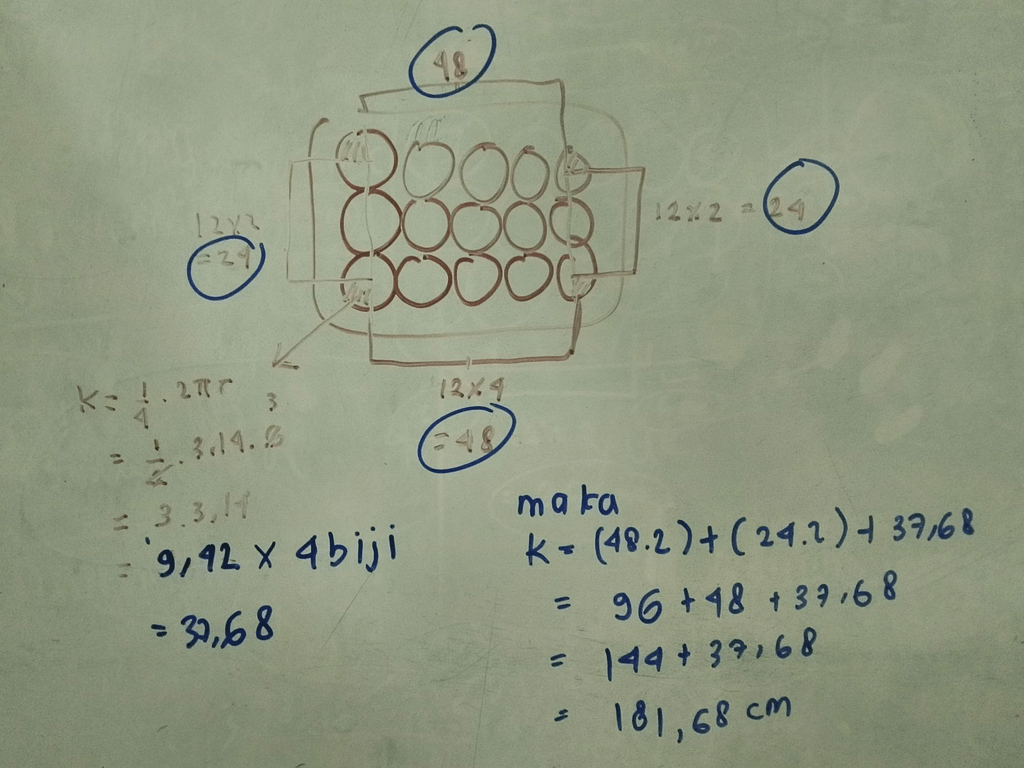 48
12x2
=24
12x2 = 24
12x4
=48
K= 1/4 . 2πr
3
= 1/2 . 3,14 . 6
= 3.3,14
= 9,42 x 4 biji
= 37,68
maka
K= (48.2)+(24.2)+37,68
= 96+48+37,68
= 144+37,68
= 181,68 cm